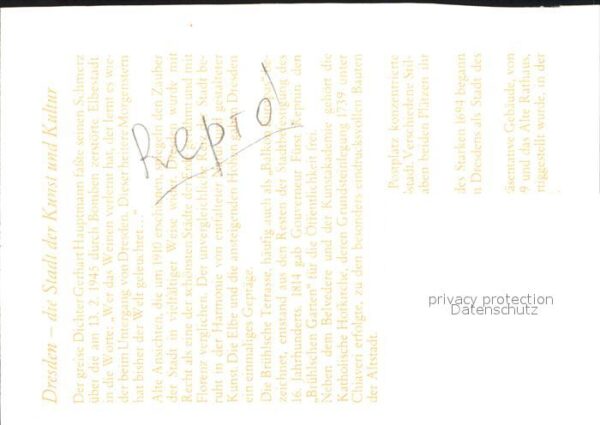 Dresden – die Stadt der Kunst und Kultur
Der greise Dichter Gerhart Hauptmann faßte seinen Schmerz
über die am 13. 2. 1945 durch Bomben zerstörte Elbestadt
in die Worte: „Wer das Weinen verlernt hat, der lernt es wie-
der beim Untergang von Dresden. Dieser heitere Morgenstern
hat bisher der Welt geleuchtet..."
Alte Ansichten, die um 1910 erschienen, den Zauber
der Stadt in vielfältiger Weise wurde mit
Recht als eine der schönsten Städte und mit
Florenz verglichen. Der unvergleichliche Stadt be-
ruht in der Harmonie von entfalteter gestalteter
Kunst. Die Elbe und die ansteigenden Dresden
ein einmaliges Gepräge.
Die Brühlsche Terrasse, häufig auch als „Balkon
zeichnet, entstand aus den Resten der des
16. Jahrhunderts. 1814 gab Gouverneur Fürst Repnin den
„Brühlschen Garten" für die Öffentlichkeit frei.
Neben dem Belvedere und der Kunstakademie gehört die
Katholische Hofkirche, deren Grundsteinlegung 1739 unter
Chiaveri erfolgte, zu den besonders eindrucksvollen Bauten
der Altstadt.
Postplatz konzentrierte
istadt. Verschiedene Stil-
aben beiden Plätzen ihr
des Starken 1694 begann
n Dresdens als Stadt des
äsentative Gebäude, von
9 und das Alte Rathaus,
rtiggestellt wurde, in der
Repro
privacy protection
Datenschutz